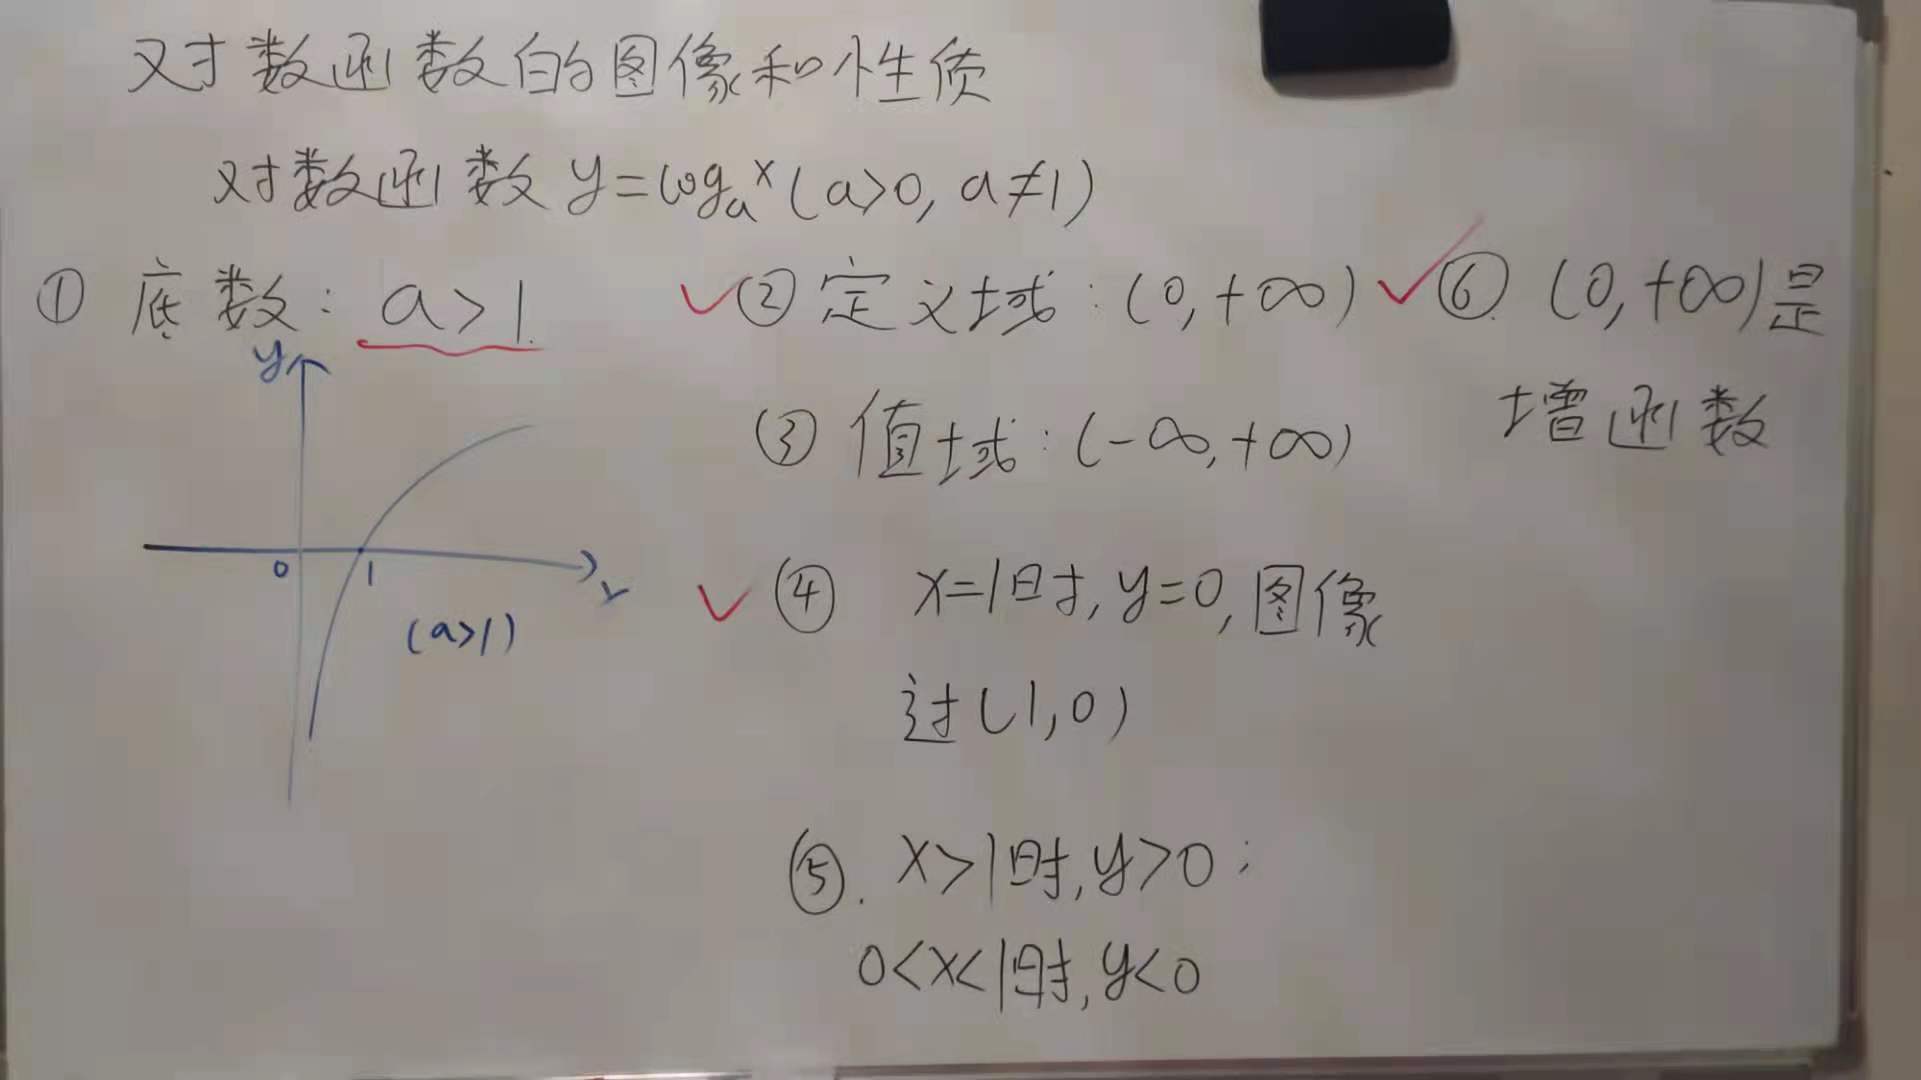 对数函数的图像和性质
对数函数 y=logₐˣ(a>0, a≠1)
① 底数: a>1
y
0
1
x
(a>1)
② 定义域:(0,+∞)
③ 值域:(-∞,+∞)
④ x=1时, y=0, 图像
过(1,0)
⑤. x>1时, y>0;
0<x<1时, y<0
⑥. (0,+∞)是
增函数